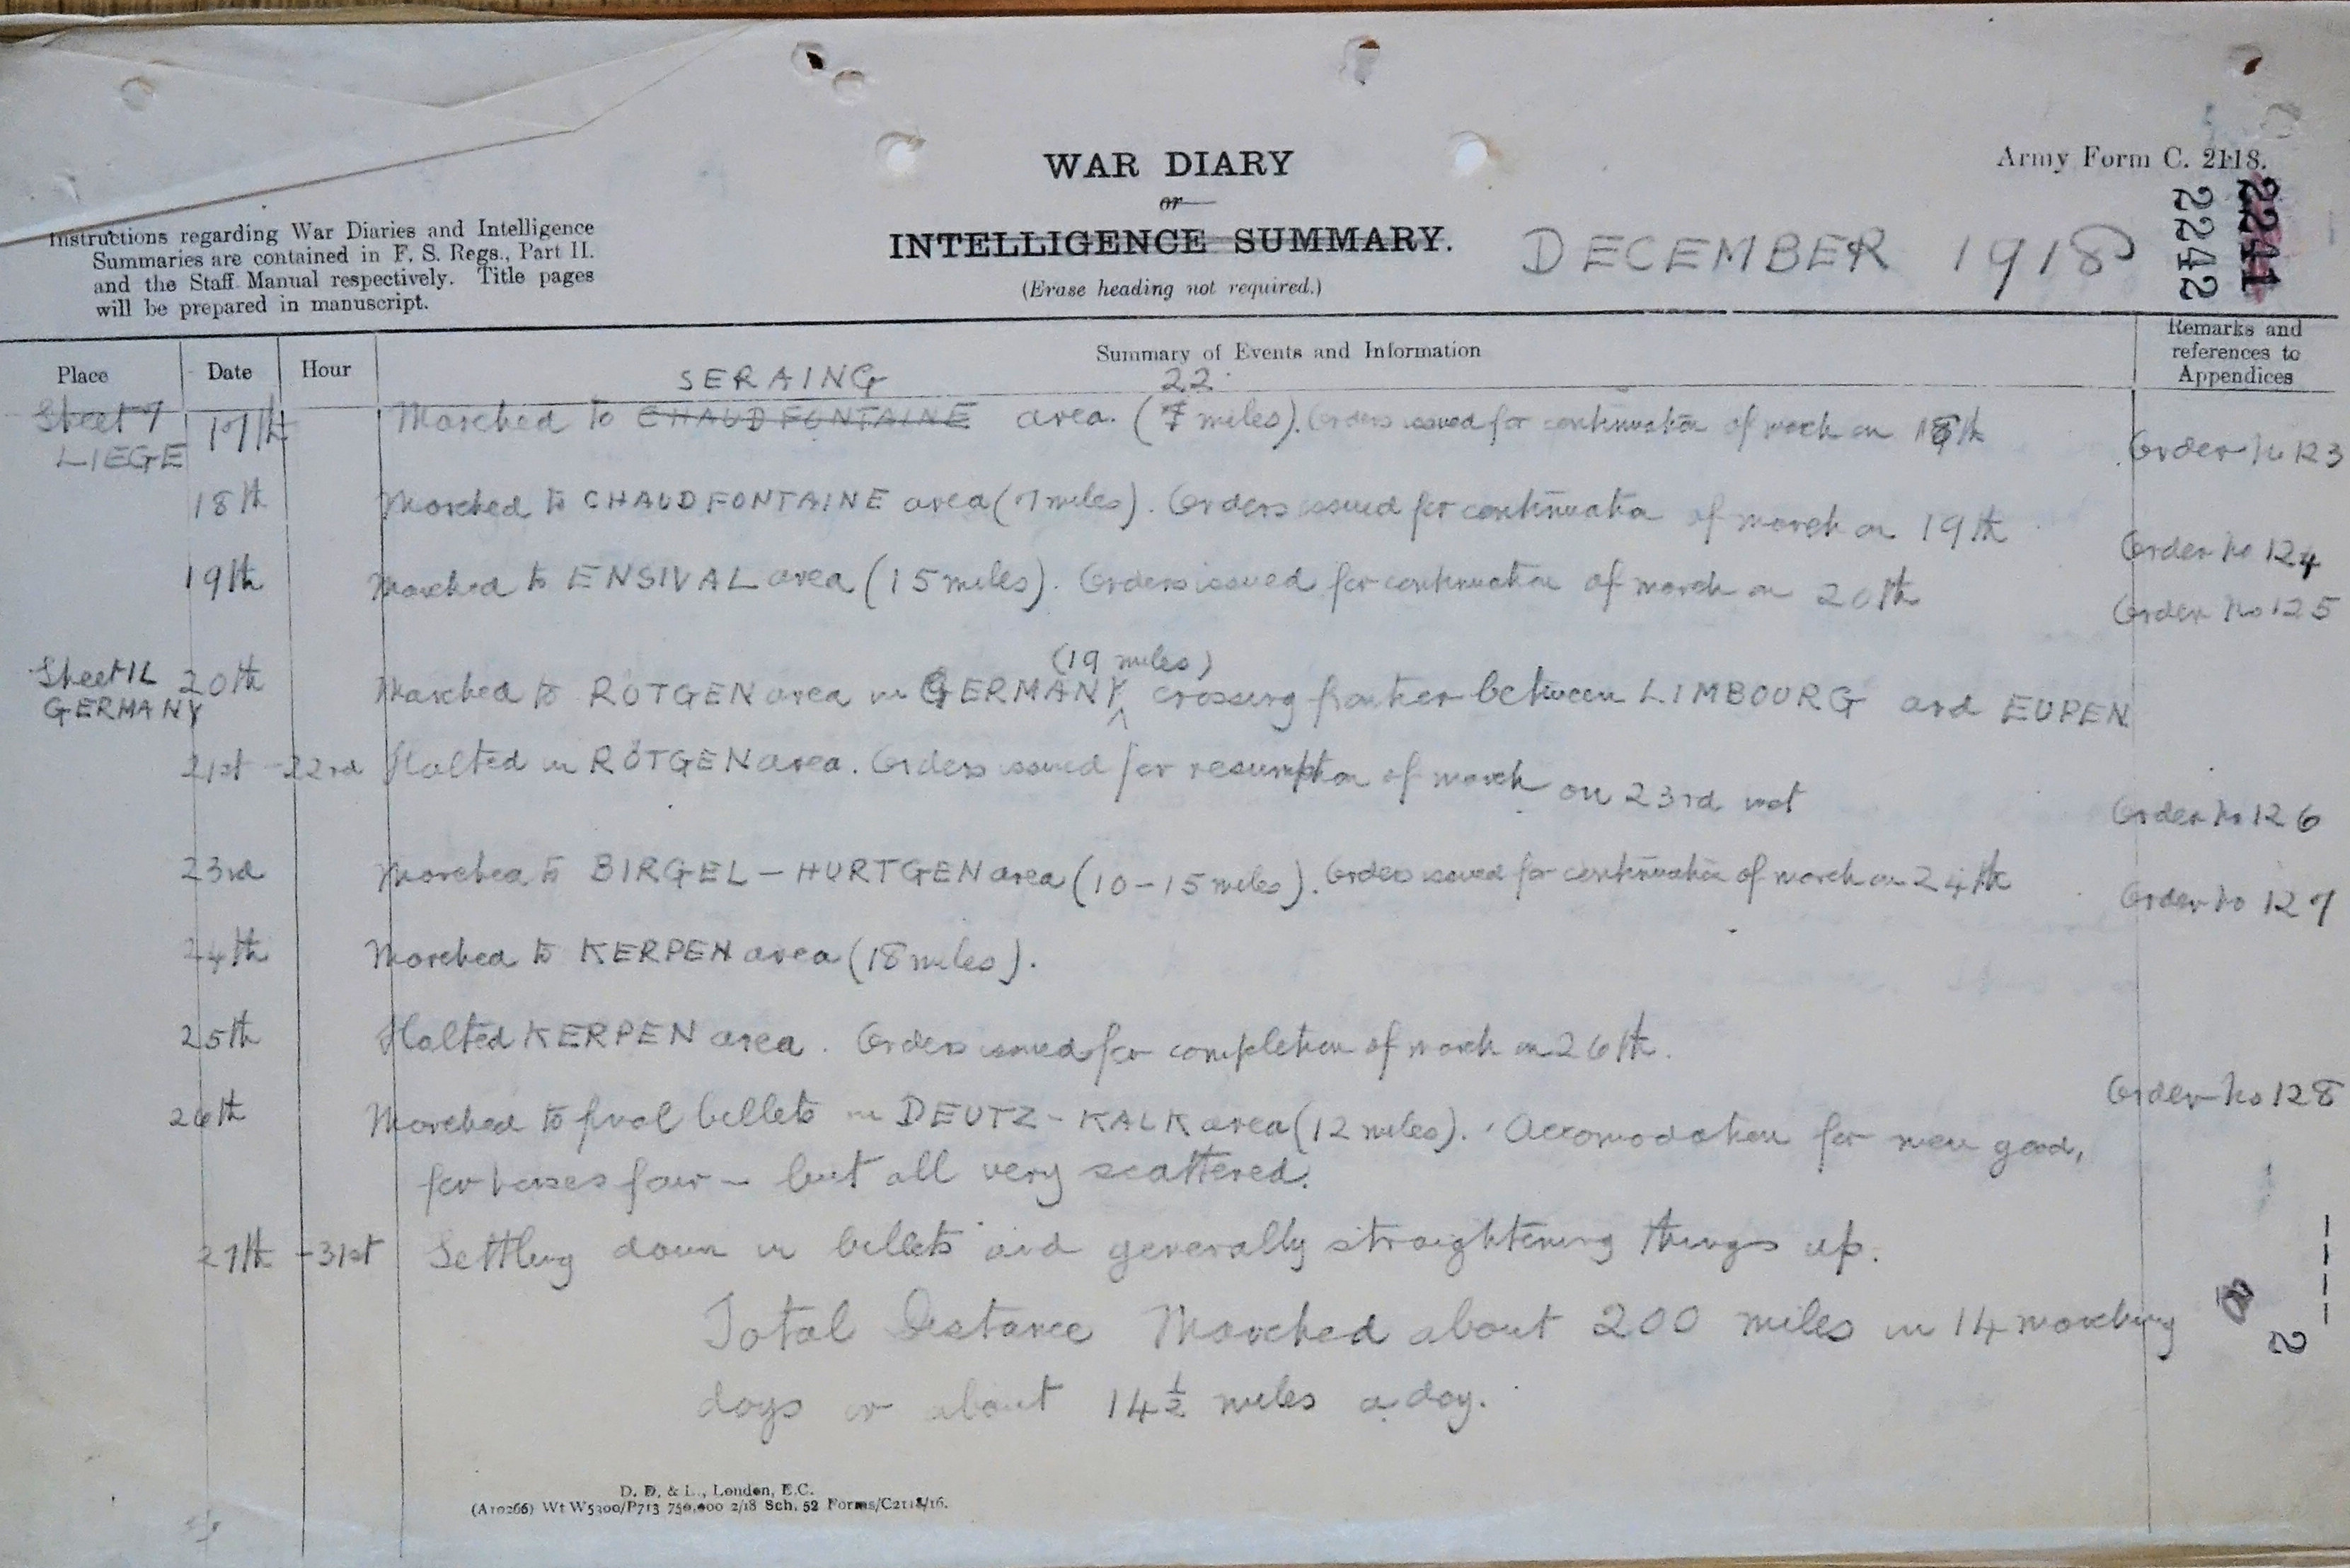 Army Form C. 2118.
WAR DIARY
or
INTELLIGENCE SUMMARY.
(Erase heading not required.)
DECEMBER 1918
2241
2242
Instructions regarding War Diaries and Intelligence
Summaries are contained in F. S. Regs., Part II.
and the Staff Manual respectively. Title pages
will be prepared in manuscript.
Place Date Hour Summary of Events and Information Remarks and
references to
Appendices
SERAING 22
Sheet 7 17th Marched to CHAUDFONTAINE area. (7 miles). Orders issued for continuation of march on 18th
LIEGE Order No 123
18th Marched to CHAUDFONTAINE area (7 miles). Orders issued for continuation of march on 19th
Order No 124
19th Marched to ENSIVAL area (15 miles). Orders issued for continuation of march on 20th
Order No 125
(19 miles)
Sheet 1L 20th Marched to RÖTGEN area in GERMANY crossing frontier between LIMBOURG and EUPEN
GERMANY
21st - 22nd Halted in RÖTGEN area. Orders issued for resumption of march on 23rd inst
Order No 126
23rd Marched to BIRGEL - HURTGEN area (10-15 miles). Orders issued for continuation of march on 24th
Order No 127
24th Marched to KERPEN area (18 miles).
25th Halted KERPEN area. Orders issued for completion of march on 26th.
Order No 128
26th Marched to final billets in DEUTZ - KALK area (12 miles). Accomodation for men good,
for horses fair - but all very scattered.
27th - 31st Settling down in billets and generally straightening things up.
Total Distance Marched about 200 miles in 14 marching
days or about 14½ miles a day.
2
D. D. & L., London, E.C.
(A10266) Wt W5300/P713 750,000 2/18 Sch. 52 Forms/C2118/16.